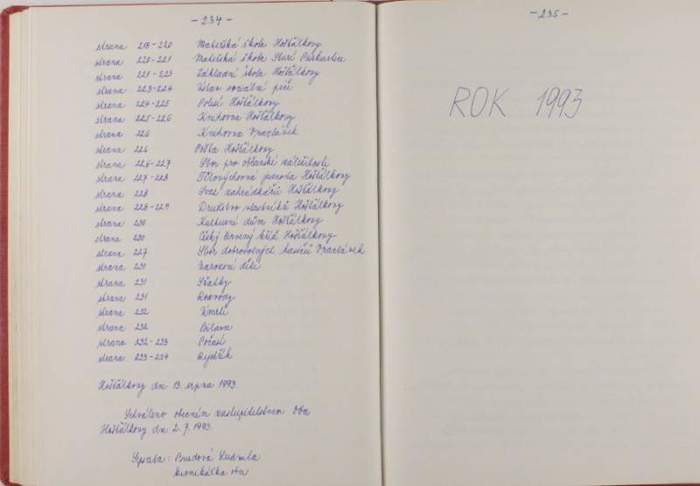 - 234 -
strana 218-220 Mateřská škola Hošťálkovy
strana 220-221 Mateřská škola Staré Purkartice
strana 221-223 Základní škola Hošťálkovy
strana 223-224 Ústav sociální péče
strana 224-225 Polesí Hošťálkovy
strana 225-226 Knihovna Hošťálkovy
strana 226 Knihovna Vraclávek
strana 226 Pošta Hošťálkovy
strana 226-227 Sbor pro občanské záležitosti
strana 227-228 Tělovýchovná jednota Hošťálkovy
strana 228 Svaz zahrádkářů Hošťálkovy
strana 228-229 Družstvo vlastníků Hošťálkovy
strana 230 Kulturní dům Hošťálkovy
strana 230 Český červený kříž Hošťálkovy
strana 227 Sbor dobrovolných hasičů Vraclávek
strana 231 Narození dětí
strana 231 Sňatky
strana 231 Rozvody
strana 232 Úmrtí
strana 232 Oslava
strana 232-233 Počasí
strana 233-234 Rejstřík
Hošťálkovy dne 13. srpna 1993.
Schváleno obecním zastupitelstvem Obce
Hošťálkovy dne 2.9.1993.
Zapsala: Ludmila
kronikářka obce
- 235 -
ROK 1993